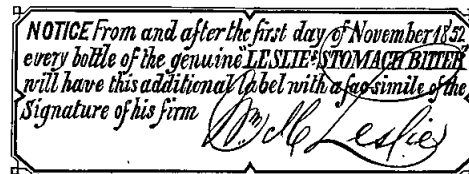 NOTICE From and after the first day of November 1852
every bottle of the genuine "LESLIE'S STOMACH BITTER
will have this additional label with a fac-simile of the
Signature of his firm
Wm Leslie